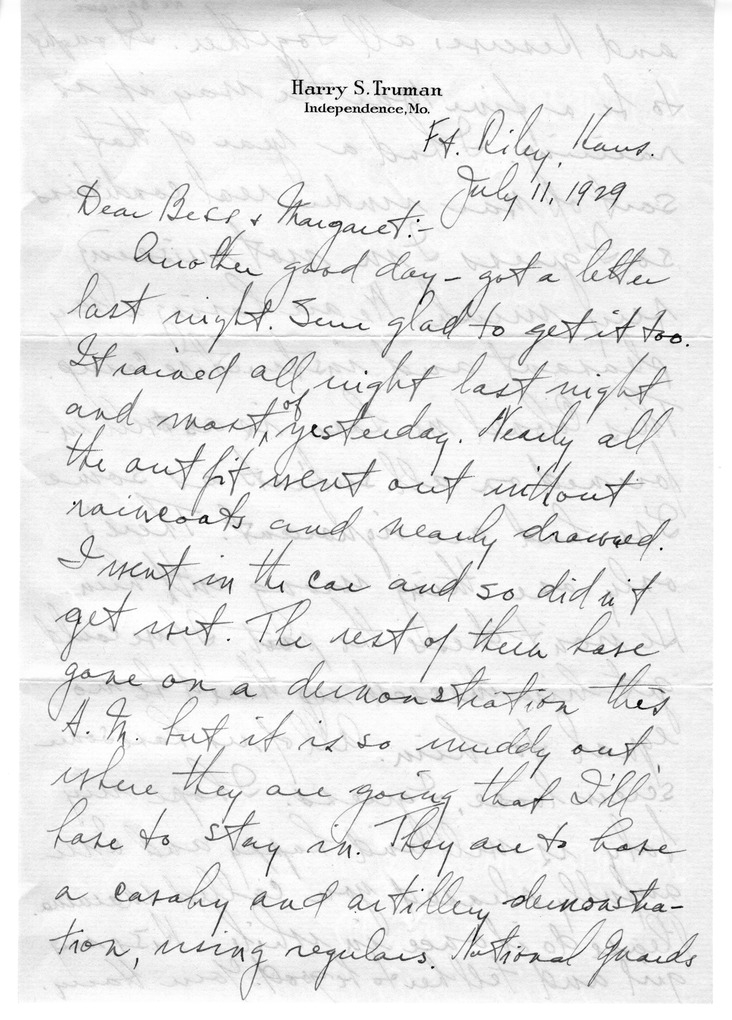 Harry S. Truman
Independence, Mo.
Ft. Riley, Kans.
July 11, 1929
Dear Bess & Margaret:-
Another good day - got a letter
last night. Sure glad to get it too.
It rained all night last night
and most of yesterday. Nearly all
the outfit went out without
raincoats and nearly drowned.
I went in the car and so didn't
get wet. The rest of them have
gone on a demonstration this
A.M. but it is so muddy out
where they are going that I'll
have to stay in. They are to have
a cavalry and artillery demonstra-
tion, using regulars, National Guards